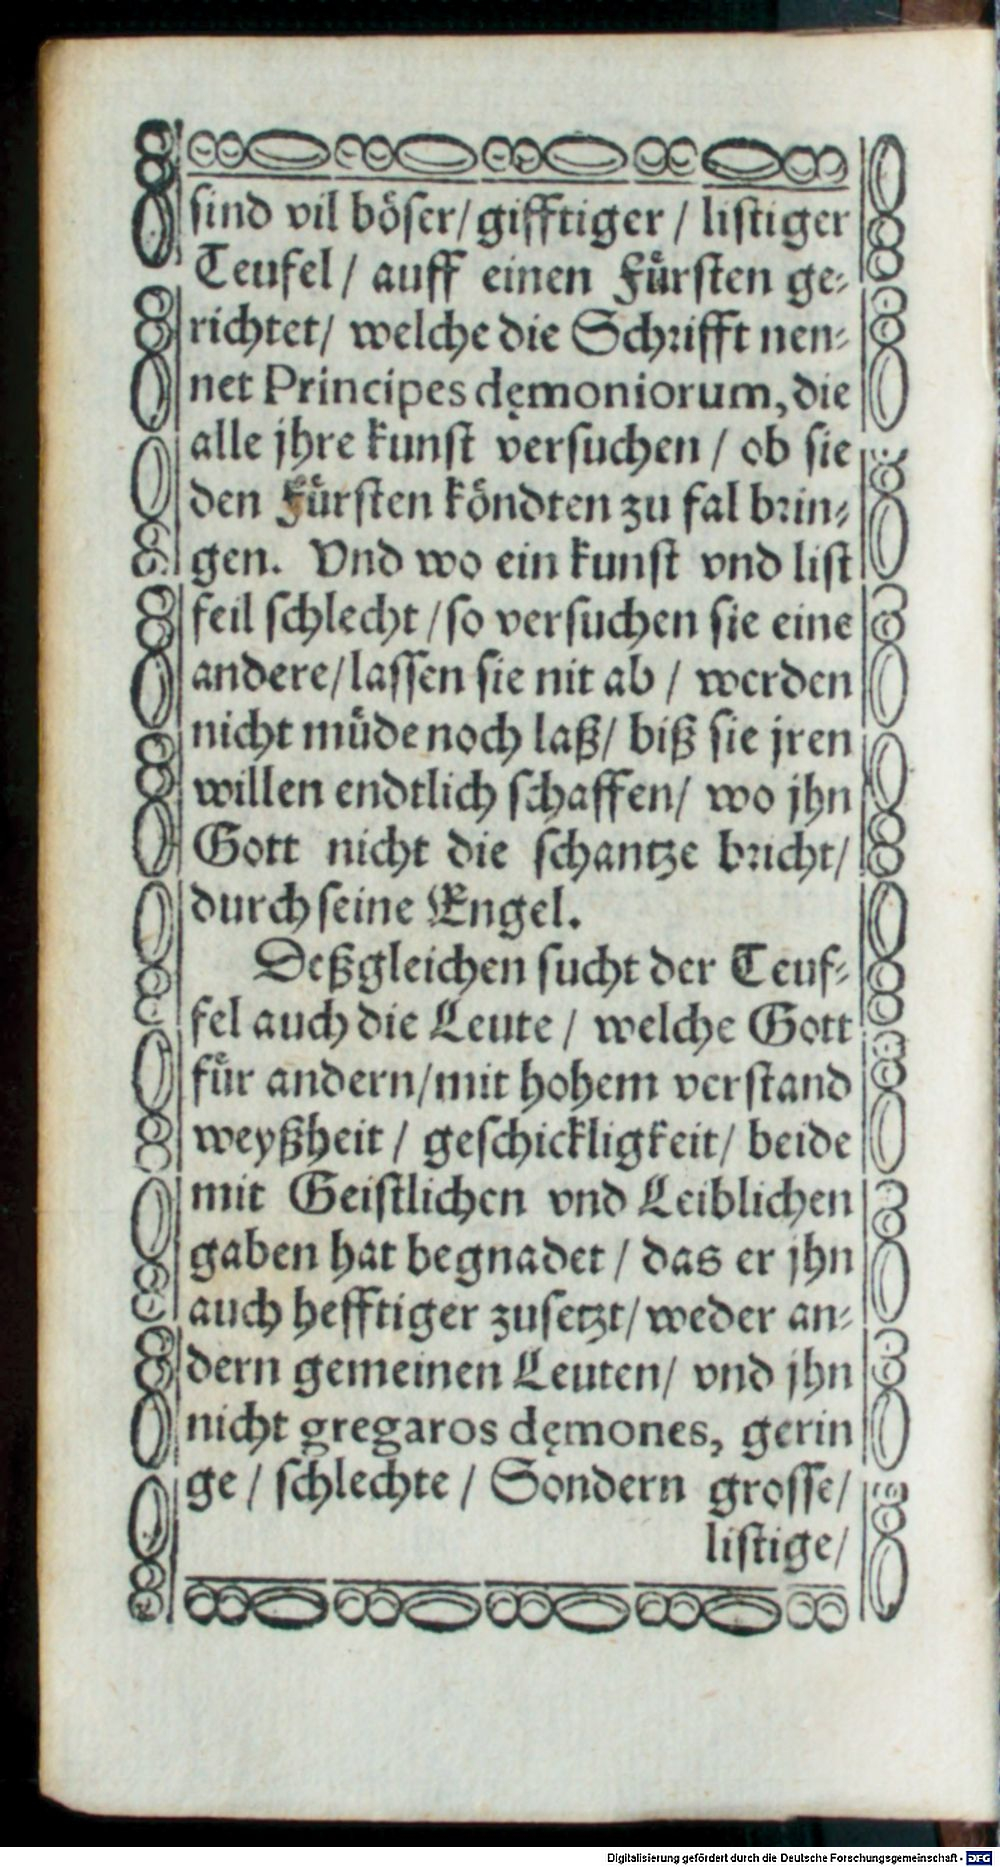 sind vil böser/ gifftiger / listiger
Teufel / auff einen Fürsten ge-
richtet/ welche die Schrifft nen-
net Principes dęmoniorum, die
alle jhre kunst versuchen / ob sie
den Fürsten köndten zu fal brin-
gen. Vnd wo ein kunst vnd list
feil schlecht / so versuchen sie eine
andere/ lassen sie nit ab / werden
nicht müde noch laß/ biß sie jren
willen endtlich schaffen/ wo jhn
Gott nicht die schantze bricht/
durch seine Engel.
Deßgleichen sucht der Teuf-
fel auch die Leute / welche Gott
für andern/ mit hohem verstand
weyßheit / geschickligkeit/ beide
mit Geistlichen vnd Leiblichen
gaben hat begnadet / das er jhn
auch hefftiger zusetzt/ weder an-
dern gemeinen Leuten/ vnd jhn
nicht gregaros dęmones, gerin
ge / schlechte / Sondern grosse/
listige/
Digitalisierung gefördert durch die Deutsche Forschungsgemeinschaft - DFG